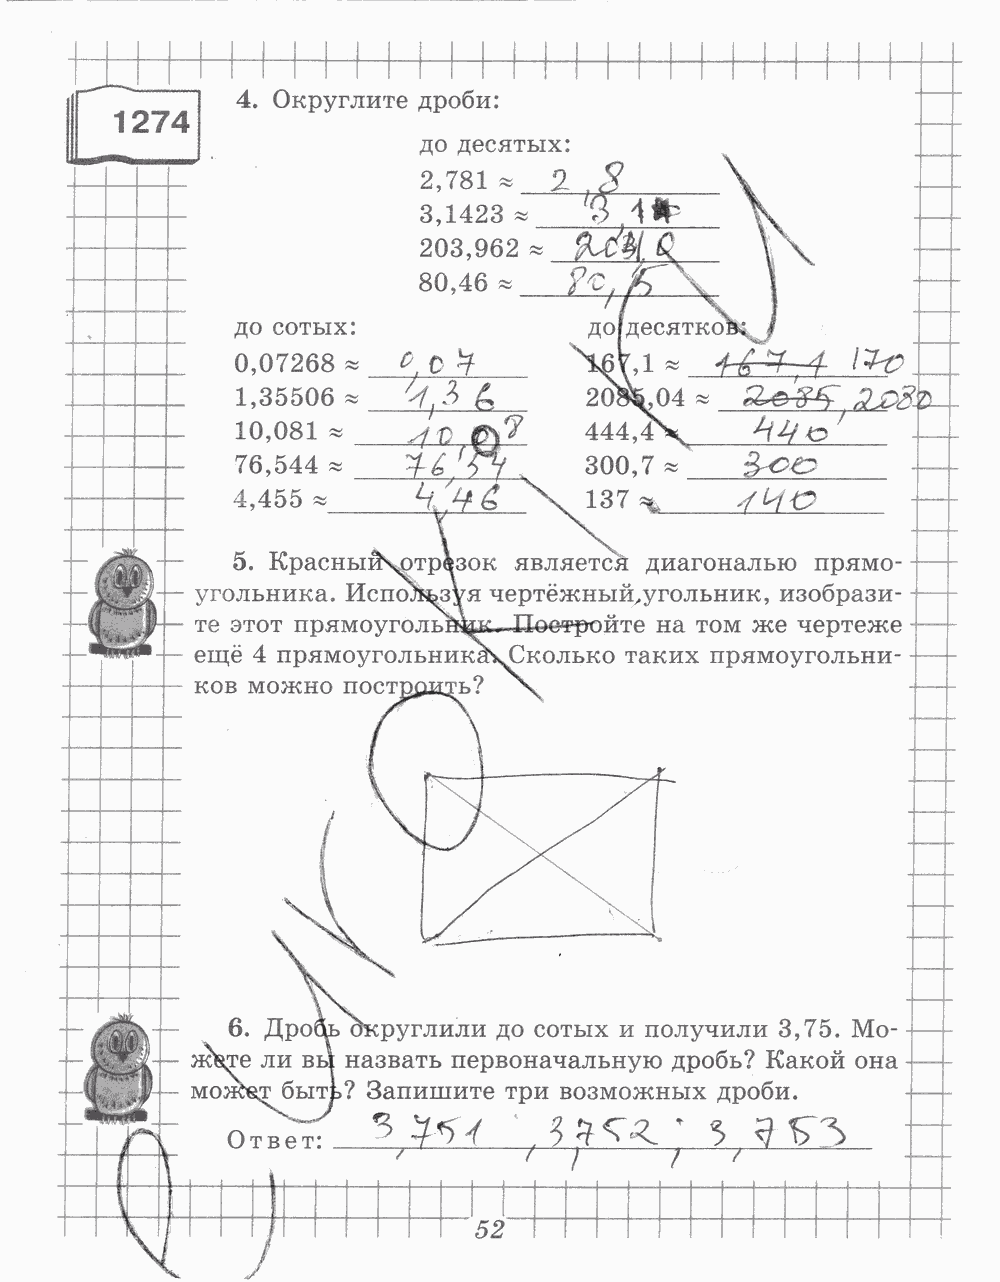 1274
4. Округлите дроби:
до десятых:
2,781 ≈ 2,8
3,1423 ≈ 3,1
203,962 ≈
80,46 ≈ 80,5
до сотых:
0,07268 ≈ 0,07
1,35506 ≈ 1,36
10,081 ≈ 10,08
76,544 ≈ 76,54
4,455 ≈ 4,46
до десятков:
167,1 ≈ 167,1 170
2085,04 ≈ 2085, 2080
444,4 ≈ 440
300,7 ≈ 300
137 ≈ 140
5. Красный отрезок является диагональю прямо-
угольника. Используя чертёжный угольник, изобрази-
те этот прямоугольник. Постройте на том же чертеже
ещё 4 прямоугольника. Сколько таких прямоугольни-
ков можно построить?
6. Дробь округлили до сотых и получили 3,75. Мо-
жете ли вы назвать первоначальную дробь? Какой она
может быть? Запишите три возможных дроби.
Ответ: 3,751 , 3,752 ; 3,753
52